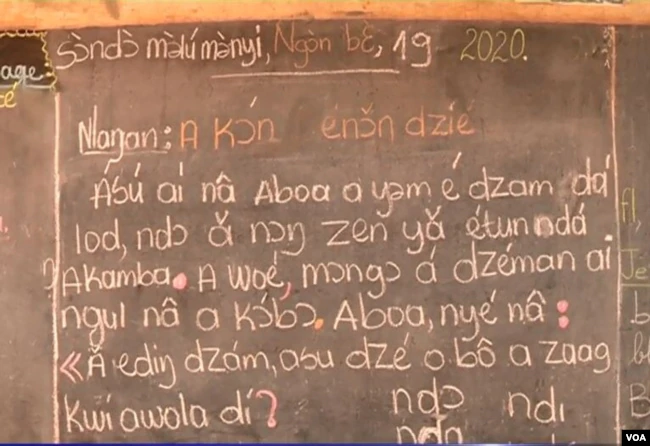 age
sɔ̀ndɔ̀ mə̀lú mə̀nyi, Ngɔ̀n bɛ̌, 19 2020.
Nlaŋan: A Kɔ́n énɔ̌n dzíé
Ású ai nâ Aboa a yəm é dzam dá
lod, ndɔ ǎ nɔŋ zen yǎ étun ndá
Akamba. A woé, mɔngɔ á dzéman ai
ngul nâ a kɔ́bɔ. Aboa, nyé nâ :
« Ǎ ediŋ dzám, asu dzé o bô a zaag
kwí awola dí ?
ndɔ ndi
nda
VOA